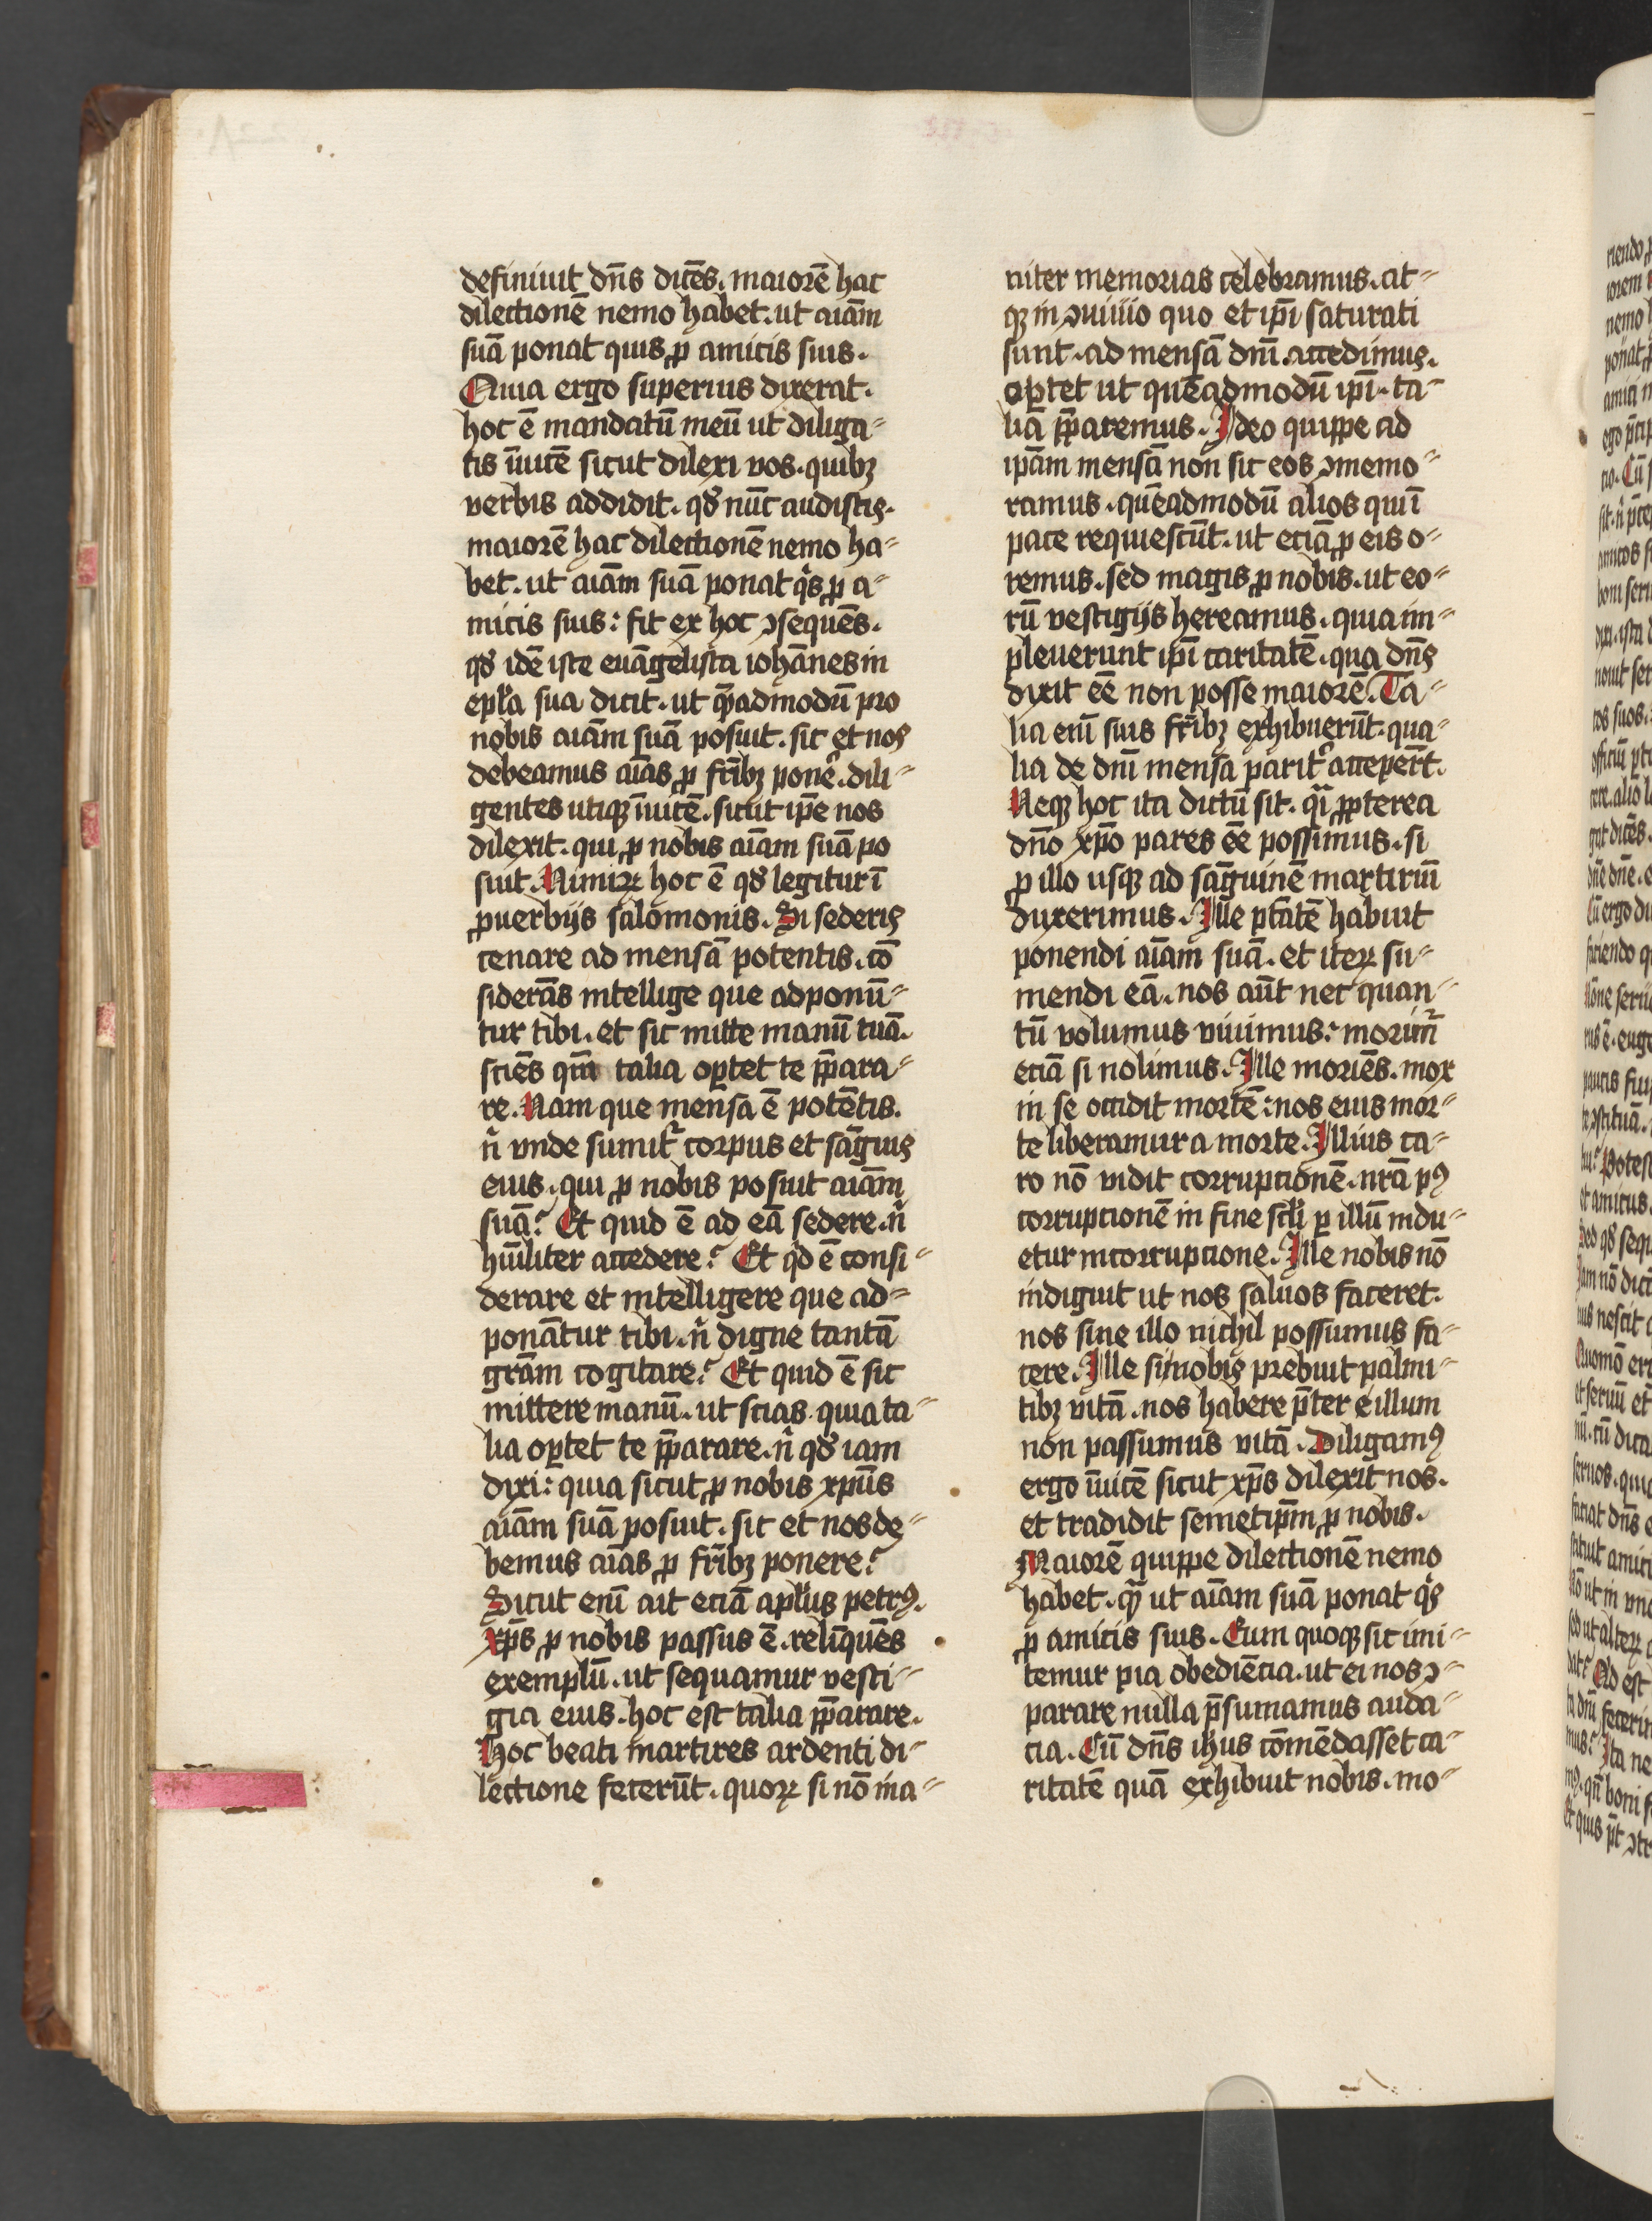 definiuit dn̄s dicēs. maiorē hac
dilectionē nemo habet. ut aiām
suā ponat quis ꝓ amicis suis.
Quia ergo superius dixerat.
hoc ē mandatū meū ut diliga⸗
tis īuicē sicut dilexi vos. quibꝫ
verbis addidit. qđ nūc audistis.
maiorē hac dilectionē nemo ha⸗
bet. ut aiām suā ponat qͥs ꝓ a⸗
micis suis: fit ex hoc ɔsequēs.
qđ idē iste euāgelista iohānes in
epl̄a sua dicit. ut quēadmodū pro
nobis aiām suā posuit. sic et nos
debeamus aīas ꝓ fr̄ibꝫ ponē. dili⸗
gentes utiqꝫ īuicē. sicut ip̄e nos
dilexit. qui ꝓ nobis aīam suā po
suit. Nimiꝝ hoc ē qđ legitur ī
ꝓuerbijs salomonis. Si sederis
cenare ad mensā potentis. cō
siderās intellige que adponū⸗
tur tibi. et sic mitte manū tuā.
sciēs qm̄ talia oꝑtet te p̄para⸗
re. Nam que mensa ē potētis.
n̄ vnde sumit᷑ corpus et sāguis
eius. qui ꝓ nobis posuit aiām
suā? Et quid ē ad eā sedere. n̄
hūiliter accedere? Et qͥd ē consi⸗
derare et intelligere que ad⸗
ponātur tibi. n̄ digne tantā
grām cogitare? Et quid ē sic
mittere manū. ut scias quia ta⸗
lia oꝑtet te p̄parare. n̄ qđ iam
dixi: quia sicut ꝓ nobis xpūs
aiām suā posuit. sic et nos de⸗
bemus aīas ꝓ fr̄ibꝫ ponere?
Sicut enī ait eciā apl̄us petrꝰ.
xp̄s ꝓ nobis passus ē. relīquēs
exemplū. ut sequamur vesti⸗
gia eius. hoc est talia p̄parare.
Hoc beati martires ardenti di⸗
lectione fecerūt. quoꝝ si nō ina⸗
niter memorias celebramus. at⸗
qꝫ in ɔuiuio quo et ip̄i saturati
sunt. ad mensā dn̄i accedimus.
oꝑtet ut quēadmodū ip̄i. ta⸗
lia p̄paremus. Ideo quippe ad
ipām mensā non sic eos ɔmemo⸗
ramus. quēadmodū alios qui ī
pace requiescūt. ut eciā ꝓ eis o⸗
remus. sed magis ꝓ nobis. ut eo⸗
rū vestigijs hereamus. quia im⸗
pleuerunt ip̄i caritatē. qua dn̄s
dixit eē non posse maiorē. Ta⸗
lia enī suis fr̄ibꝫ exhibuerūt. qua⸗
lia de dn̄i mensa parit᷑ acceper̄t.
Neqꝫ hoc ita dictū sit. qͣi ꝓpterea
dn̄o xp̄o pares eē possimus. si
ꝓ illo usqꝫ ad sāguinē martiriū
duxerimus. Ille ptātē habuit
ponendi aiām suā. et iteꝝ su⸗
mendi eā. nos aūt nec quan⸗
tū volumus viuimus: morim᷑
eciā si nolimus. Ille moriēs. mox
in se occidit mortē: nos eius mor⸗
te liberamur a morte. Illius ca⸗
ro nō vidit corruptionē. nrā pꝰ
corruptionē in fine scl̄i ꝑ illū indu⸗
etur incorruptione. Ille nobis nō
indiguit ut nos saluos faceret.
nos sine illo nichil possumus fa⸗
cere. Ille si nobis prebuit palmi⸗
tibꝫ vitā. nos habere p̄ter illum
non passumus vitā. Diligamꝰ
ergo īuicē sicut xp̄s dilexit nos.
et tradidit semetip̄m ꝓ nobis.
Maiorē quippe dilectionē nemo
habet. qͣ ut aiām suā ponat qͥs
ꝓ amicis suis. Eum quoqꝫ sic imi⸗
temur pia obediēcia. ut ei nos ɔ⸗
parare nulla p̄sumamus auda⸗
cia. Cū dn̄s ihus cōmēdasset ca⸗
ritatē quā exhibuit nobis. mo⸗